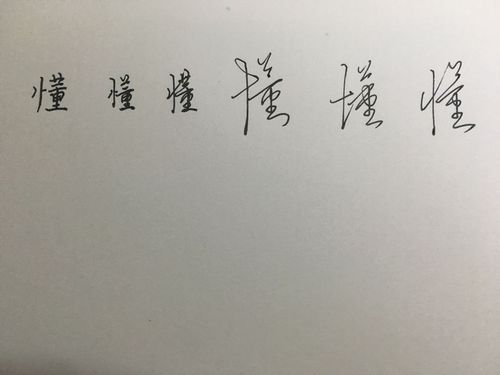 懂 懂 懂 懂 懂 懂